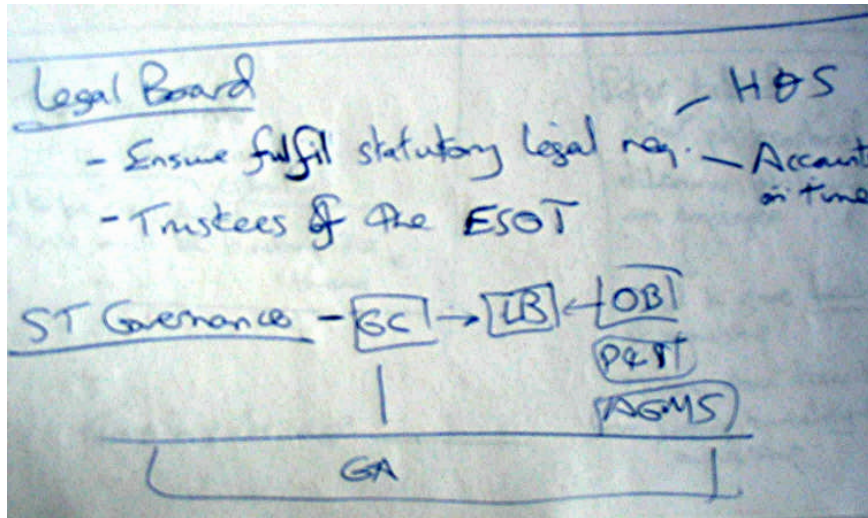 Legal Board
- H&S
- Ensure fulfil statutory legal req. - Accounts
on time
- Trustees of the ESOT
ST Governance - GC → LB ← OB
AGMS
GA